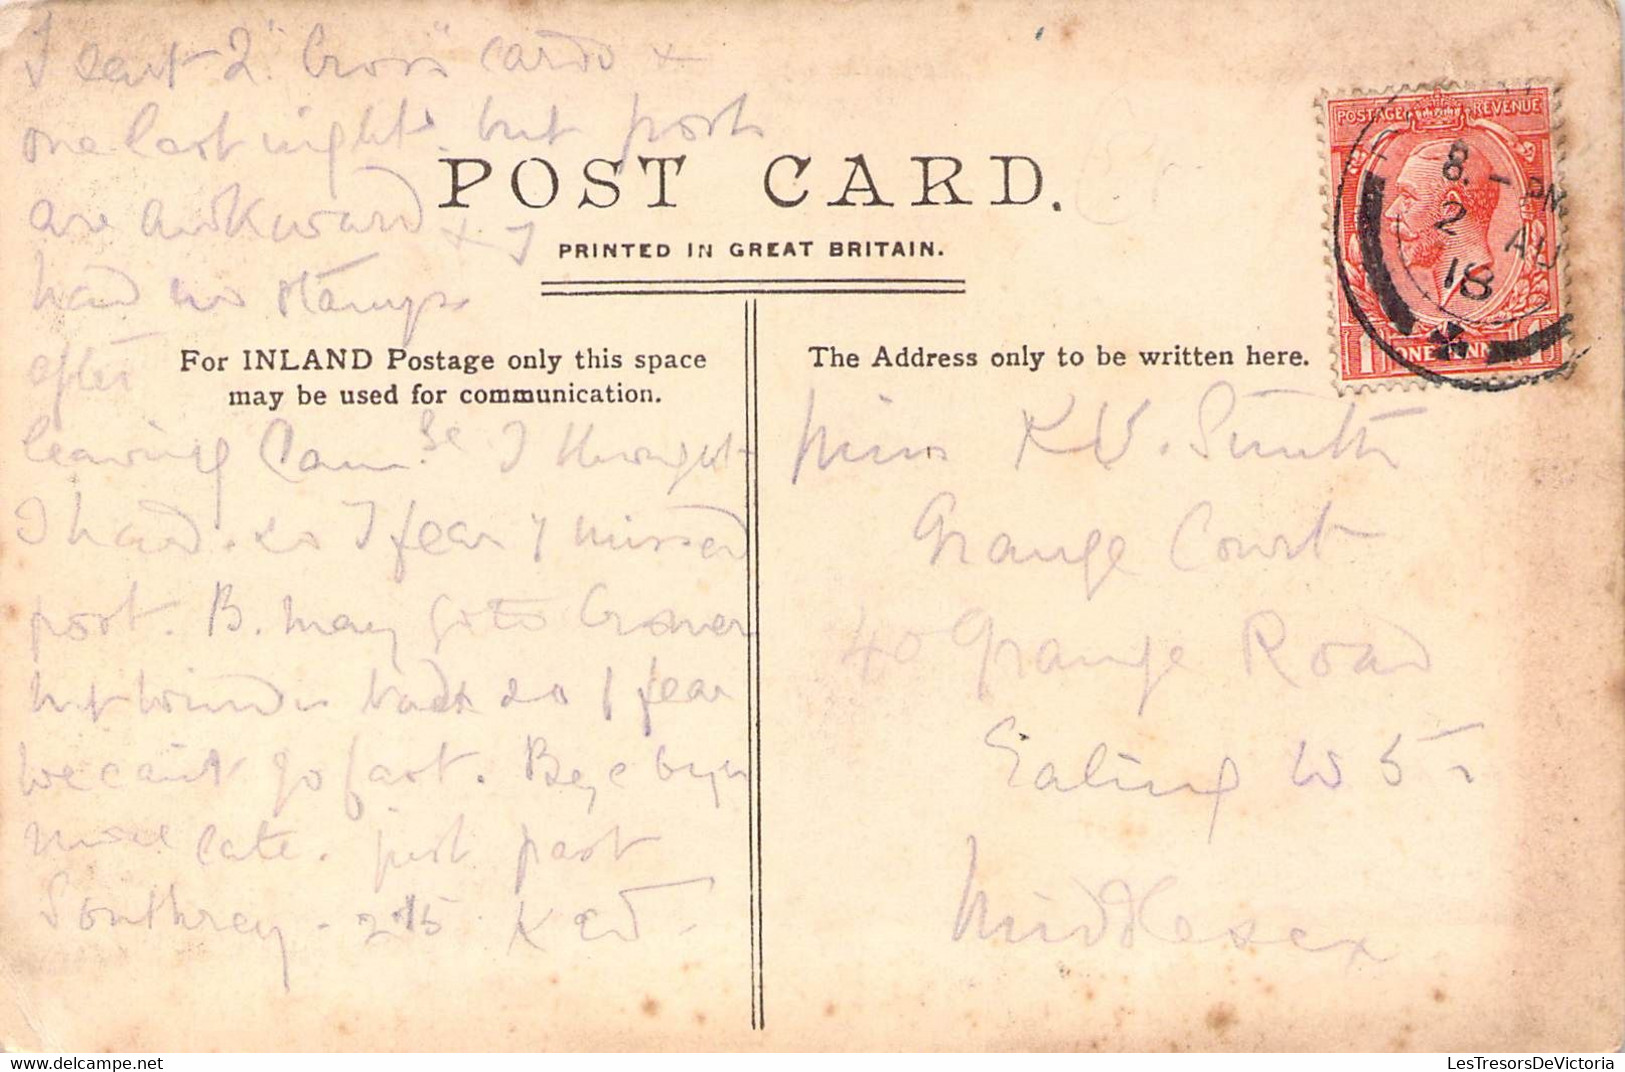 I sent 2 "Cross" cards &
one last night but posts
are awkward & I
had no stamps
after
leaving Cam.ge I thought
I had. so I fear I missed
post. B. may go to Cromer
but wind is bad so I fear
we can't go fast. Bye bye
more late. just past
Southrey - 2.15
POST CARD.
PRINTED IN GREAT BRITAIN.
For INLAND Postage only this space
may be used for communication.
The Address only to be written here.
Miss K V. Smith
Grange Court
40 Grange Road
Ealing W 5
Middlesex
POSTAGE REVENUE
8. - PM
2 AU
18
1 ONE PENNY 1
LesTresorsDeVictoria